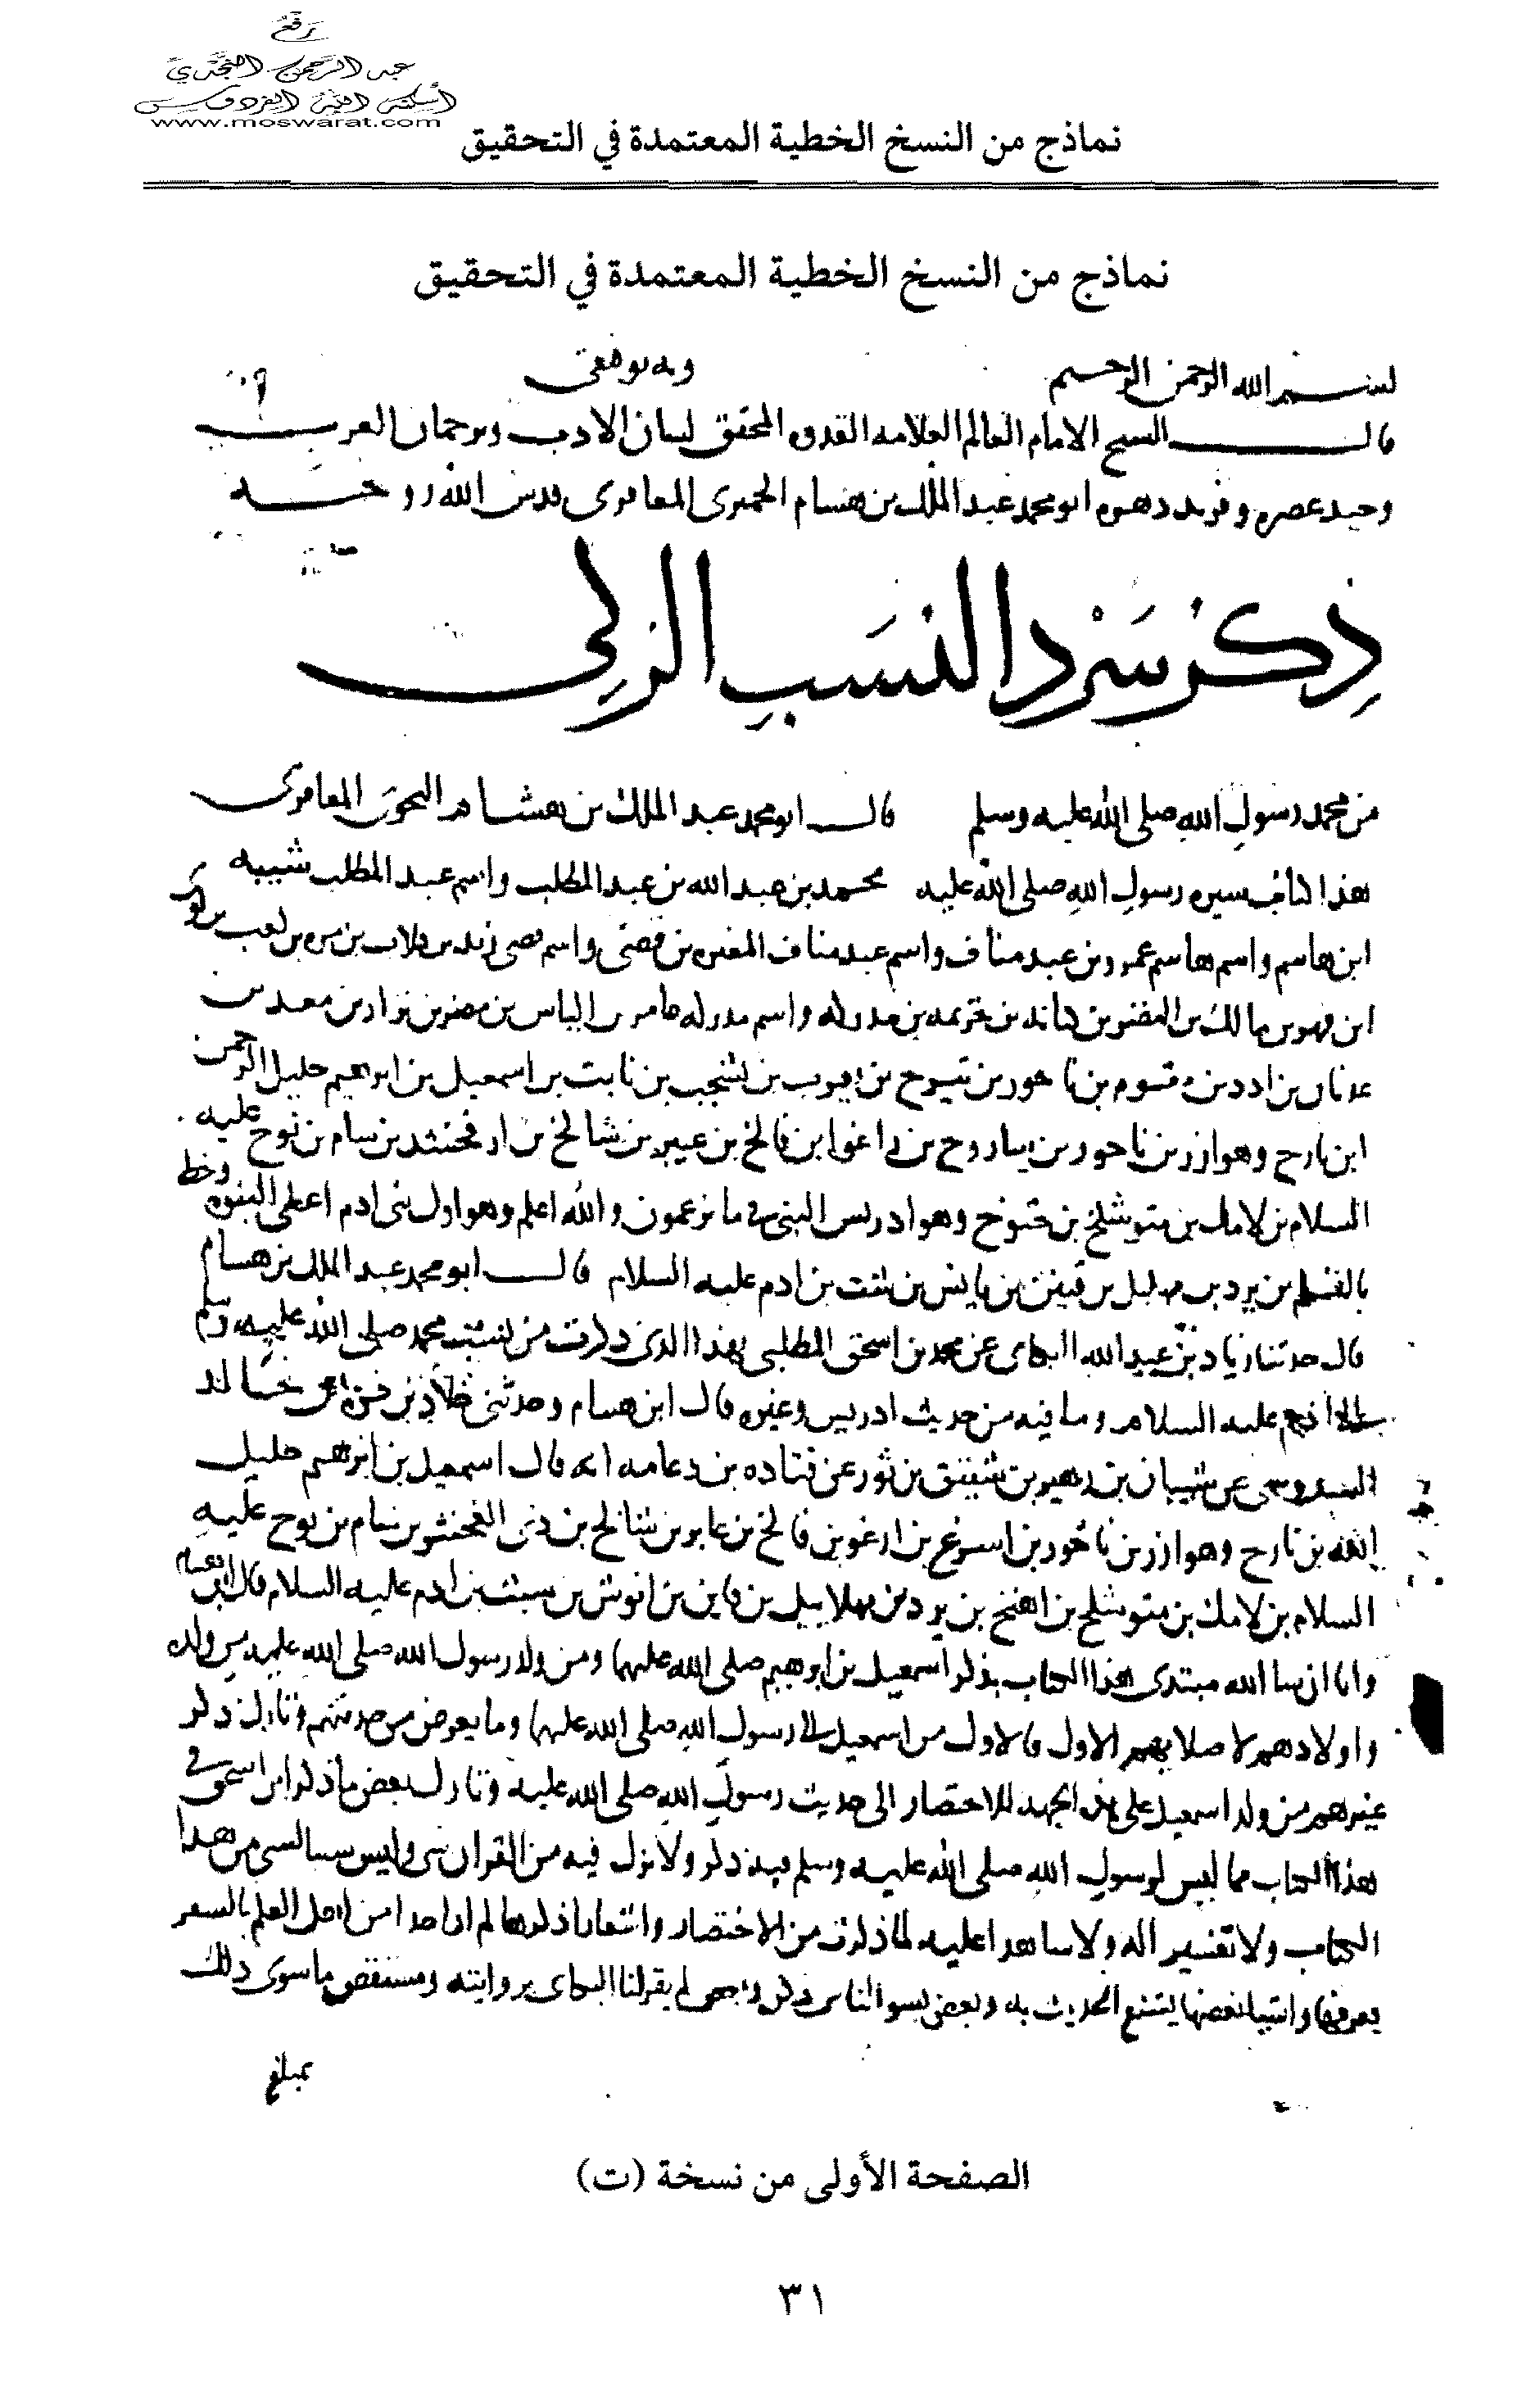 رفع
عبد الرحمن النجدي
أسكنه الله الفردوس
www.moswarat.com
نماذج من النسخ الخطية المعتمدة في التحقيق
نماذج من النسخ الخطية المعتمدة في التحقيق
بسم الله الرحمن الرحيم وبه توفيقي
قال الشيخ الامام العالم العلامه القدوه المحقق لسان الادب وترجمان العرب
وحيد عصره وفريد دهره ابو محمد عبد الملك بن هشام الحميرى المعافرى قدس الله روحه
ذكر سرد النسب الزكي
من محمد رسول الله صلى الله عليه وسلم قال ابو محمد عبد الملك بن هشام النحوى المعافرى
هذا كتاب سيره رسول الله صلى الله عليه محمد بن عبد الله بن عبد المطلب واسم عبد المطلب شيبه
ابن هاشم واسم هاشم عمرو بن عبد مناف واسم عبد مناف المغيره بن قصى واسم قصى زيد بن كلاب بن مره بن كعب بن لوى
ابن فهر بن مالك بن النضر بن كنانه بن خزيمه بن مدركه واسم مدركه عامر بن الياس بن مضر بن نزار بن معد بن
عدنان بن ادد بن مقوم بن ناحور بن تيرح بن يعرب بن يشجب بن نابت بن اسمعيل بن ابرهيم خليل الرحمن
ابن تارح وهو ازر بن ناحور بن ساروح بن راعوا بن فالخ بن عيبر بن شالخ بن ارفخشد بن سام بن نوح عليه
السلام بن لامك بن متوشلخ بن خنوخ وهو ادريس النبى فى ما يزعمون والله اعلم وهو اول بنى ادم اعطى النبوه وخط
بالقلم بن يرد بن مهليل بن قينن بن يانش بن شت بن ادم عليه السلام قال ابو محمد عبد الملك بن هشام
قال حدثنا زياد بن عبد الله البكاى عن محمد بن اسحق المطلبى بهذا الذى ذكرت من نسب محمد صلى الله عليه وسلم
الى ادم عليه السلام وما فيه من حديث ادريس وغيره قال ابن هشام وحدثنى خلاد بن قره بن خالد
السدوسى عن شيبان بن زهير بن شقيق بن ثور عن قتاده بن دعامه انه قال اسمعيل بن ابرهيم خليل
الله بن تارح وهو ازر بن ناخور بن اسرغ بن ارغو بن فالخ بن عابر بن شالخ بن الفخشد بن سام بن نوح عليه
السلام بن لامك بن متوشلح بن اهنخ بن يرد بن مهلاييل بن قاين بن انوش بن شيث بن ادم عليه السلام قال ابن هشام
وانا ان شا الله مبتدى هذا الكتاب بذكر اسمعيل بن ابرهيم صلى الله عليهما ومن ولد رسول الله صلى الله عليه من ولده
واولادهم لاصلابهم الاول فالاول من اسمعيل الى رسول الله صلى الله عليهما وما يعرض من حديثهم وتارك ذكر
غيرهم من ولد اسمعيل على هذه الجهه للاختصار الى حديث رسول الله صلى الله عليه وتارك بعض ما ذكر ابن اسحق فى
هذا الكتاب مما ليس لرسول الله صلى الله عليه وسلم فيه ذكر ولا نزل فيه من القران شى وليس سببا لشى من هذا
الكتاب ولا تفسير اله ولا شاهدا عليه لما ذكرت من الاختصار واشعارا ذكرها لم ار احدا من اهل العلم بالشعر
يعرفها واشيا بعضها يشنع الحديث به وبعض يسو الناس ذكره وبعض لم يقر لنا البكاى بروايته ومستقص ما سوى ذلك
بلغ
الصفحة الأولى من نسخة (ت)
٣١